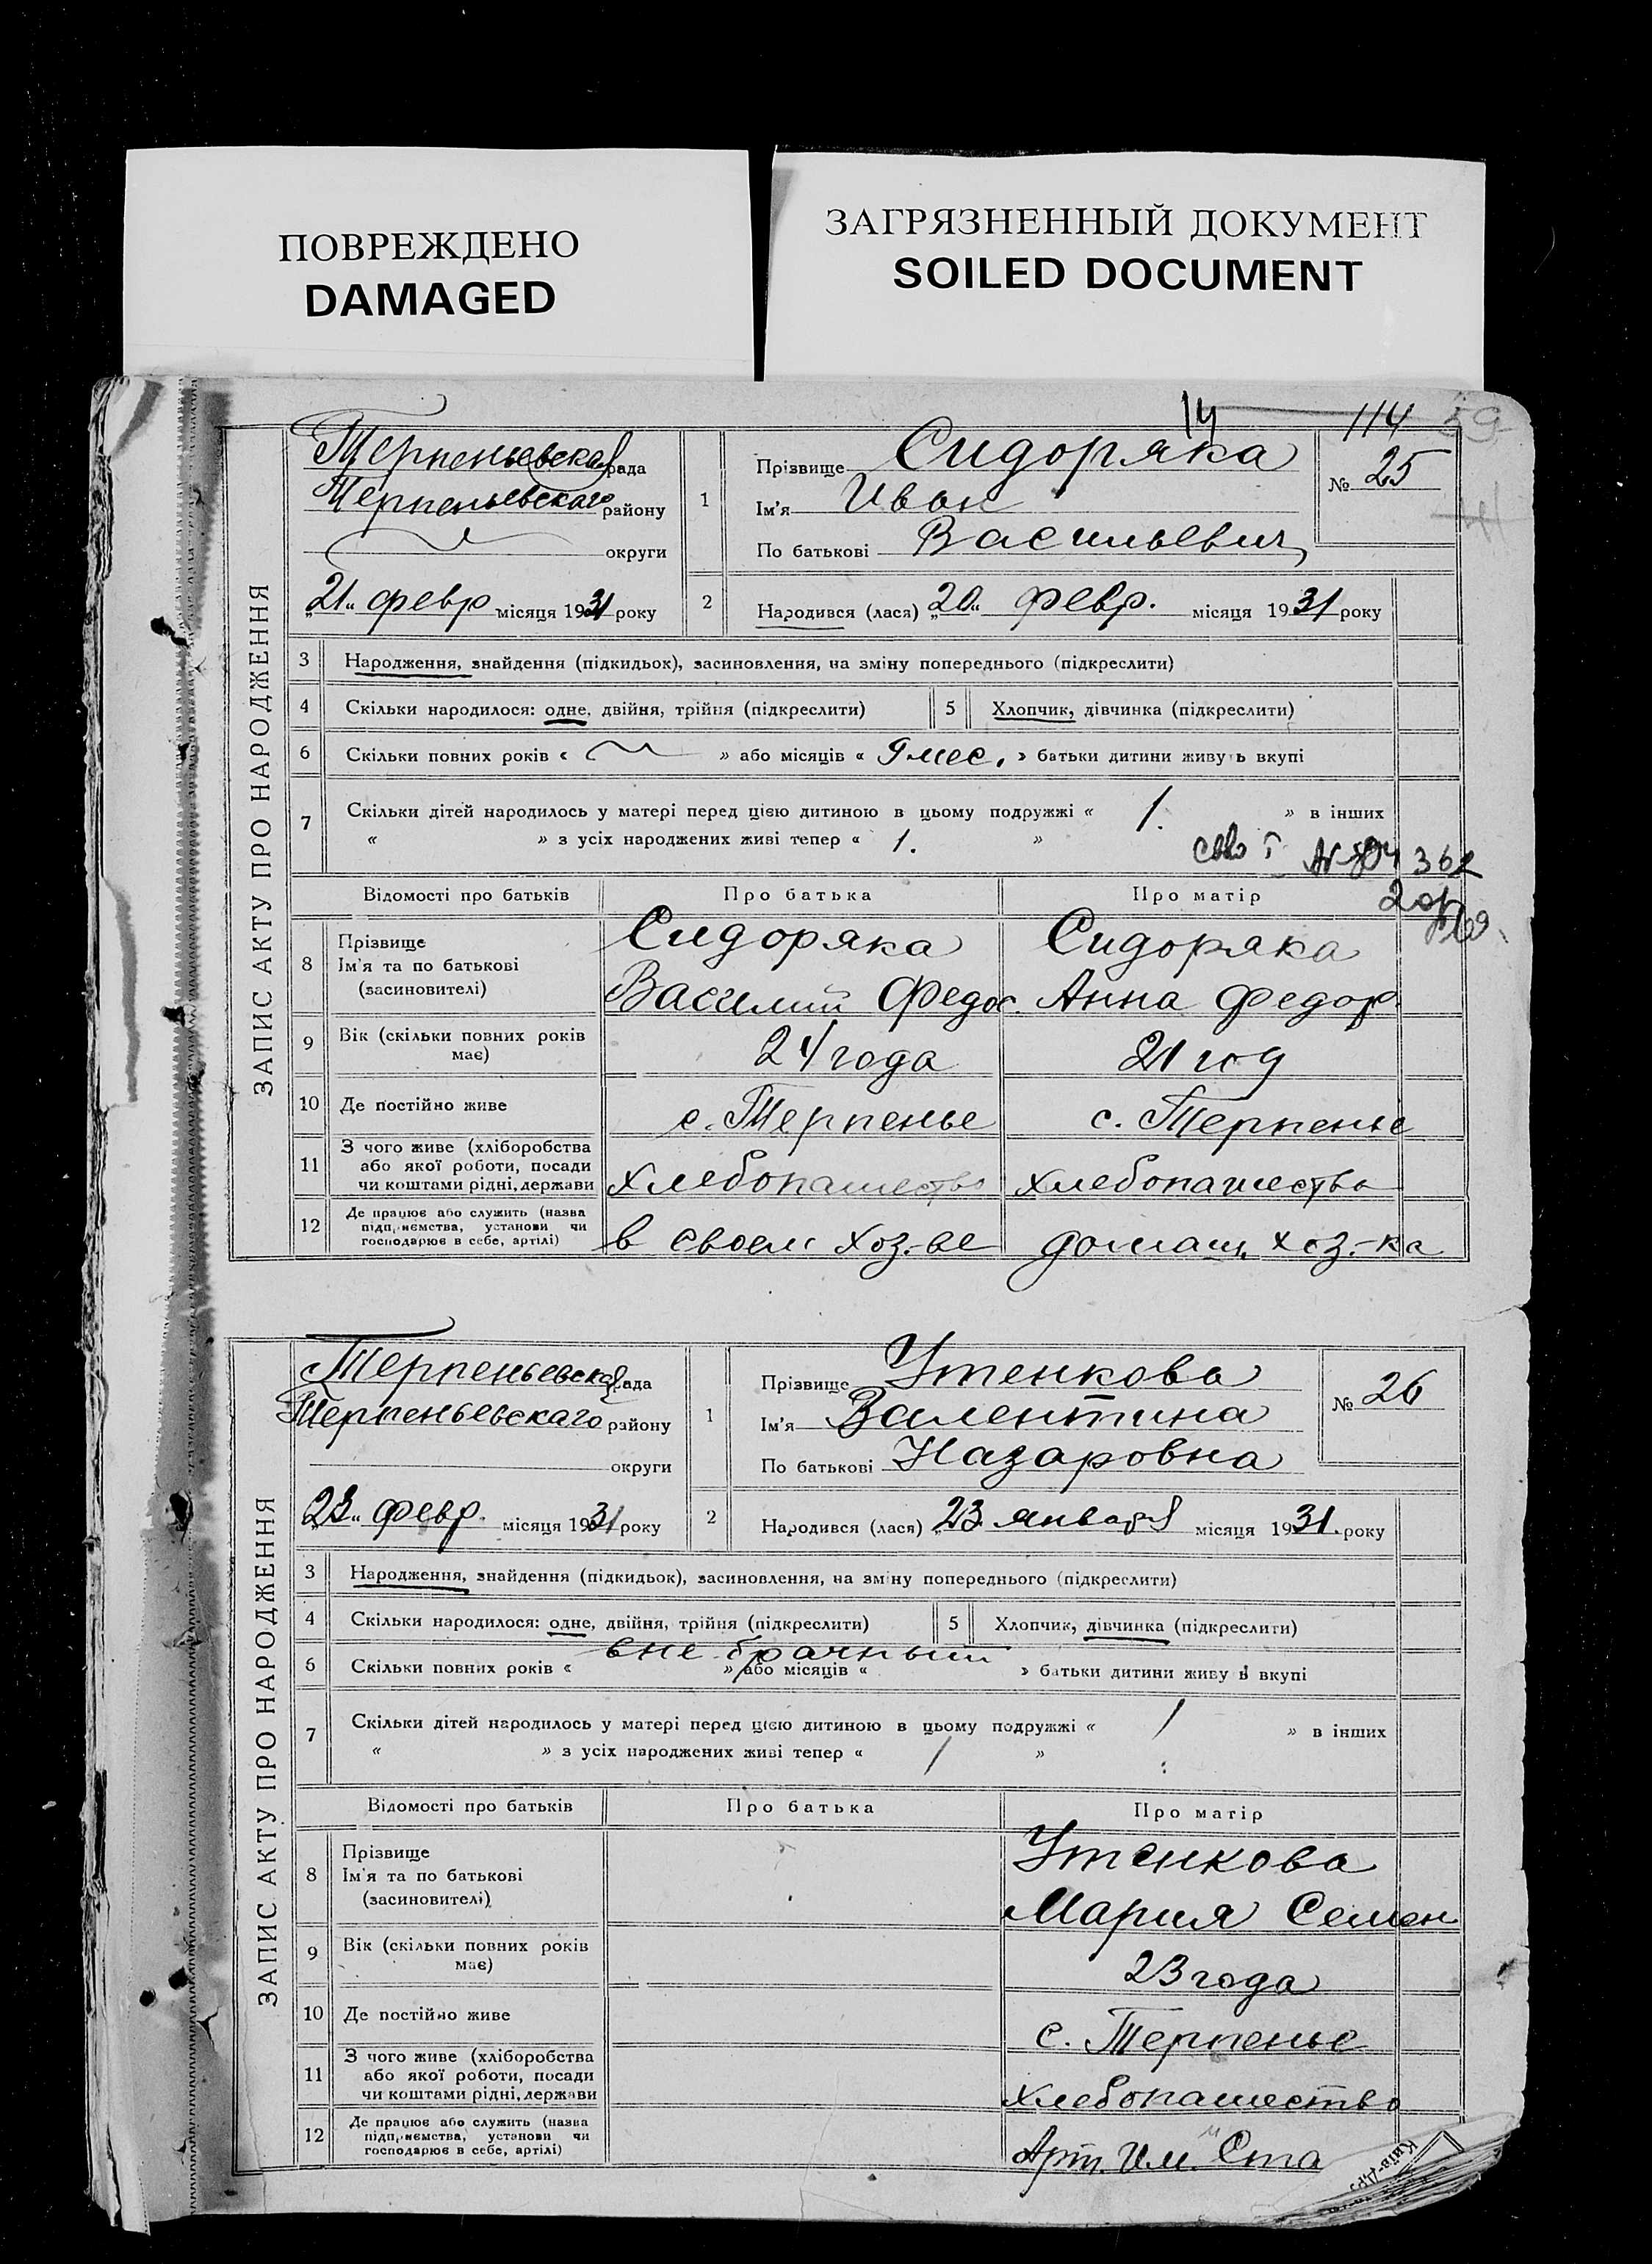 ПОВРЕЖДЕНО
DAMAGED
ЗАГРЯЗНЕННЫЙ ДОКУМЕНТ
SOILED DOCUMENT
14 114 59
ЗАПИС АКТУ ПРО НАРОДЖЕННЯ
Терпеньевская рада
Терпеньевскаго району
округи
„21“ февр місяця 1931 року
1
Прізвище Сидоряка
Ім'я Иван
По батькові Васильевич
№ 25
2
Народився (лася) „20“ февр. місяця 1931 року
3 Народження, знайдення (підкидьок), засиновлення, на зміну попереднього (підкреслити)
4 Скільки народилося: одне, двійня, трійня (підкреслити) 5 Хлопчик, дівчинка (підкреслити)
6 Скільки повних років « » або місяців « 9 мес. » батьки дитини живуть вкупі
7 Скільки дітей народилось у матері перед цією дитиною в цьому подружжі « 1. » в інших
« » з усіх народжених живі тепер « 1. »
362
Відомості про батьків Про батька Про матір
8 Прізвище
Ім'я та по батькові
(засиновителі)
Сидоряка
Василий Федос.
Сидоряка
Анна Федор.
9 Вік (скільки повних років має)
24 года
21 год
10 Де постійно живе
с. Терпенье
с. Терпенье
11 З чого живе (хліборобства
або якої роботи, посади
чи коштами рідні, держави
хлебопашество
хлебопашество
12 Де працює або служить (назва
підприємства, установи чи
господарює в себе, артілі)
в своем хоз-ве
домаш. хоз.-ка
ЗАПИС АКТУ ПРО НАРОДЖЕННЯ
Терпеньевская рада
Терпеньевскаго району
округи
„23“ февр. місяця 1931 року
1
Прізвище Утенкова
Ім'я Валентина
По батькові Назаровна
№ 26
2
Народився (лася) „23“ января місяця 1931. року
3 Народження, знайдення (підкидьок), засиновлення, на зміну попереднього (підкреслити)
4 Скільки народилося: одне, двійня, трійня (підкреслити) 5 Хлопчик, дівчинка (підкреслити)
вне брачный
6 Скільки повних років « » або місяців « » батьки дитини живуть вкупі
7 Скільки дітей народилось у матері перед цією дитиною в цьому подружжі « 1 » в інших
« » з усіх народжених живі тепер « 1 »
Відомості про батьків Про батька Про матір
8 Прізвище
Ім'я та по батькові
(засиновителі)
Утенкова
Мария Семен
9 Вік (скільки повних років має)
23 года
10 Де постійно живе
с. Терпенье
11 З чого живе (хліборобства
або якої роботи, посади
чи коштами рідні, держави
хлебопашество
12 Де працює або служить (назва
підприємства, установи чи
господарює в себе, артілі)
Арт. Им. Ста